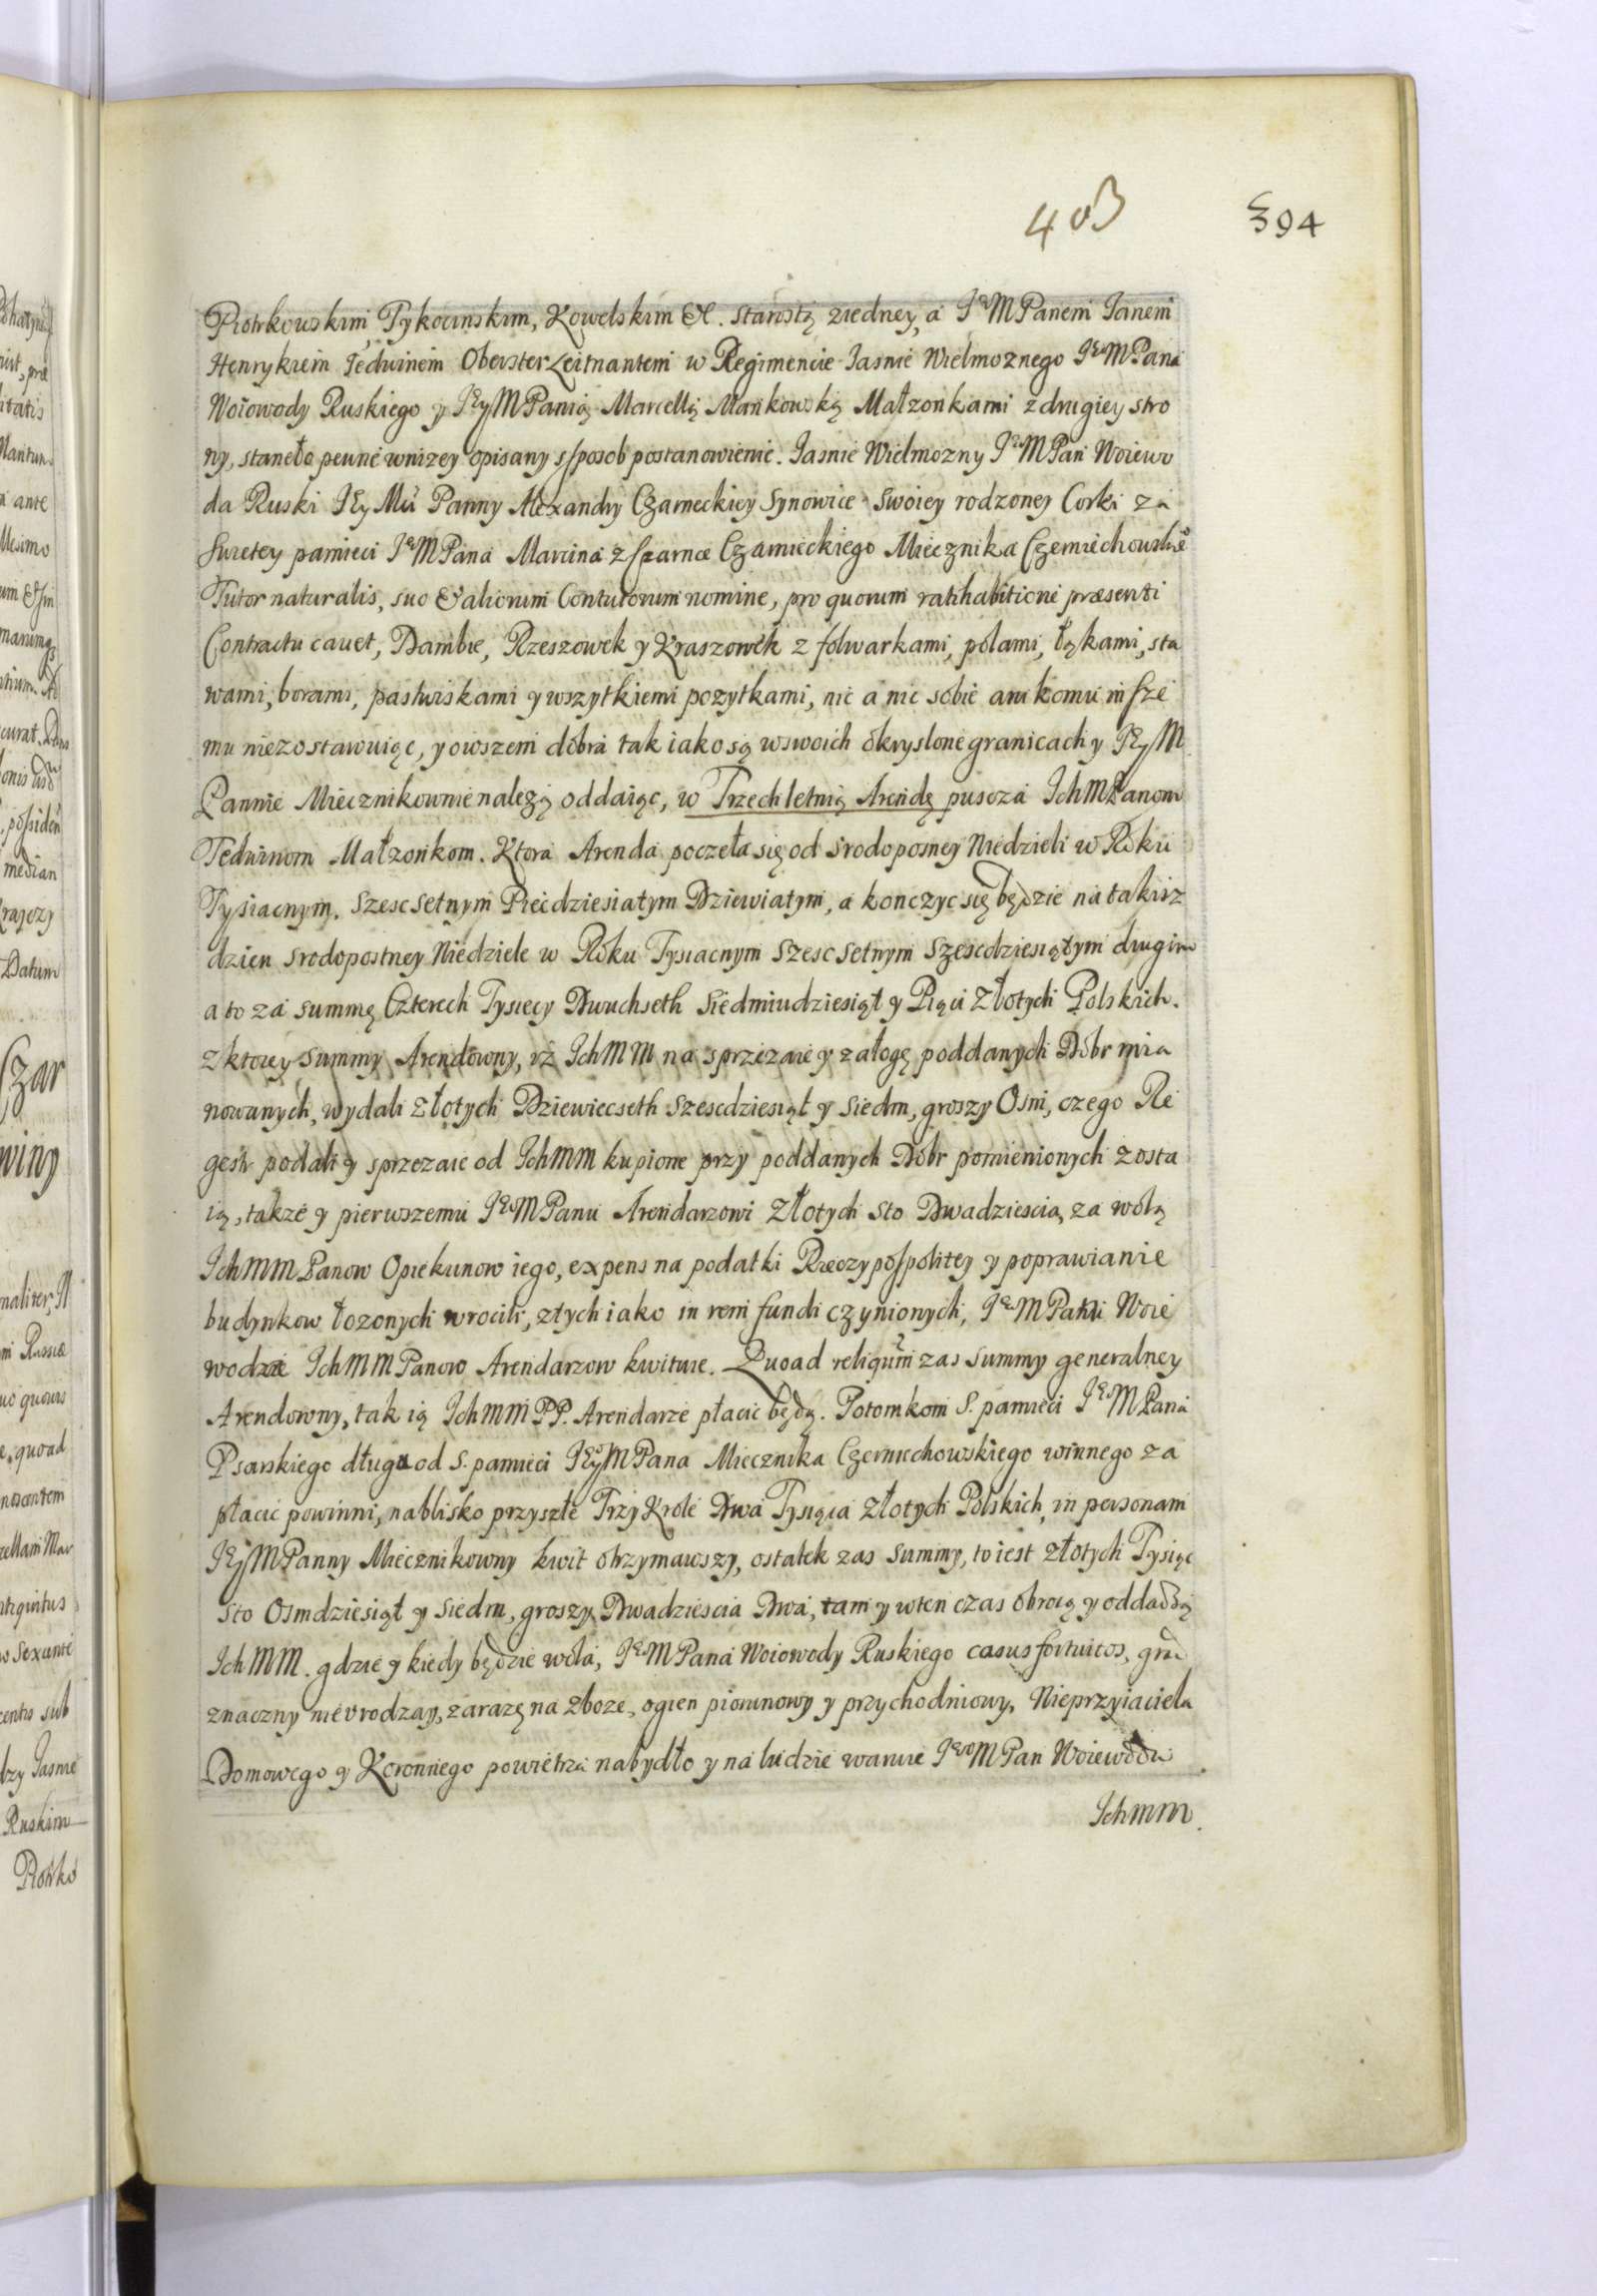 403 394
Piotrkowskim, Tykocinskim, Kowelskim &c. Starostą ziedney, a JeoM Panem Janem
Henrykiem Tedwinem Oberster Leitnantem w Regimencie Jasnie Wielmoznego JeoM Pana
Woiowody Ruskiego y JeyM Panią Marcellą Mankowską Małzonkami z drugiey stro
ny, staneło pewne wnizey opisany sposob postanowienie. Jasnie Wielmozny JeoM Pan Woiewo
da Ruski Jey Mći Panny Alexandry Czarneckiey Synowice swoiey rodzoney Corki za
Swietey pamieci JeoM Pana Marcina z Czarnce Czarnieckiego Miecznika Czerniechowskieo
Tutor naturalis, suo & aliorum Contutorum nomine, pro quorum ratihabitione præsenti
Contractu cavet, Dambie, Rzeszowek y Kraszowek z folwarkami, polami, łąkami, sta
wami, borami, pastwiskami y wszytkiemi pozytkami, nic a nic sobie ani komu insze
mu niezostawuiąc, y owszem dobra tak iako są wswoich okryslone granicach y JeyM
Pannie Miecznikownie nalezą oddaiąc, w Trzechletnią Arendę puscza IchM Panom
Tedwinom Małzonkom. Ktora Arenda poczeła się od srodoposney Niedzieli w Roku
Tysiacnym, Szescsetnym Piecdziesiatym Dziewiatym, a konczyc się będzie na takisz
dzien srodopostney Niedziele w Roku Tysiacnym Szescsetnym Szescdziesiątym drugim
a to za summę Czterech Tysięcy Dwuchseth Siedmiudziesiąt y Pięci Złotych Polskich.
z ktorey Summy Arendowny, iż IchMM na sprzezaie y załogę poddanych Dobr mia
nowanych, wydali Złotych Dziewiecseth Szescdziesiąt y Siedm, groszy Osm, czego Re
gestr podali y sprzezaie od IchMM kupione przy poddanych Dobr pomienionych zosta
ią, takze y pierwszemu JeoM Panu Arendarzowi Złotych Sto Dwadziescia, za wolą
IchMM Panow Opiekunow iego, expens na podatki Rzeczypospolitey y poprawianie
budynkow łozonych wrocili, ztych iako in rem fundi czynionych, JeoM Pan Woie
woda IchMM Panow Arendarzow kwituie. Quoad reliquum zas summy generalney
Arendowny, tak ią IchMM PP. Arendarze płacic będą. Potomkom S. pamieci JeoM Pana
Psarskiego długu od S. pamieci JeoM Pana Miecznika Czerniechowskiego winnego za
płacic powinni, nablisko przyszłe Trzy Krole Dwa Tysiąca Złotych Polskich, in personam
JeyM Panny Miecznikowny kwit otrzymawszy, ostatek zas Summy, to iest Złotych Tysiąc
Sto Osmdziesiąt y Siedm, groszy Dwadziescia Dwa, tam y wten czas obrocą y oddadzą
IchMM. gdzie y kiedy będzie wola, JeoM Pana Woiowody Ruskiego casus fortuitos, grad
znaczny nieurodzay, zarazę na zboze, ogien piorunowy y przychodniowy, Nieprzyiaciela
Domowego y Koronnego powietrza nabydło y na ludzie waruie JeoM Pan Woiewoda
IchMM.